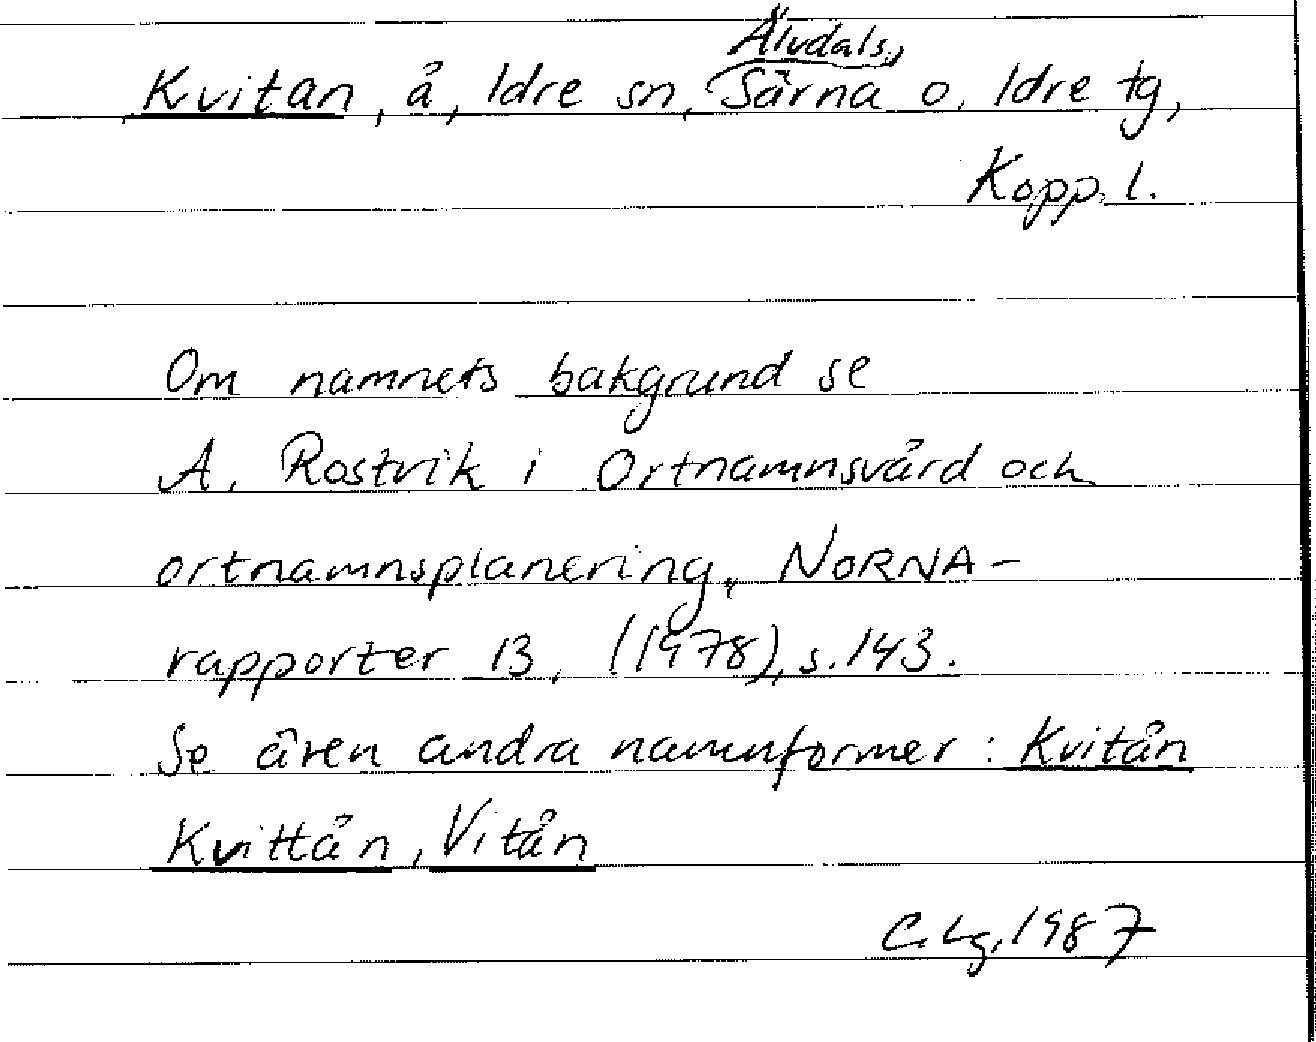 Älvdals,
Kvitan, å, Idre sn, Särna o. Idre tg,
Kopp. l.
Om namnets bakgrund se
A. Rostvik i Ortnamnsvård och
ortnamnsplanering, NORNA-
rapporter 13, (1978), s. 143.
Se även andra namnformer: Kvitån
Kvittån, Vitån
C. Lg, 1987